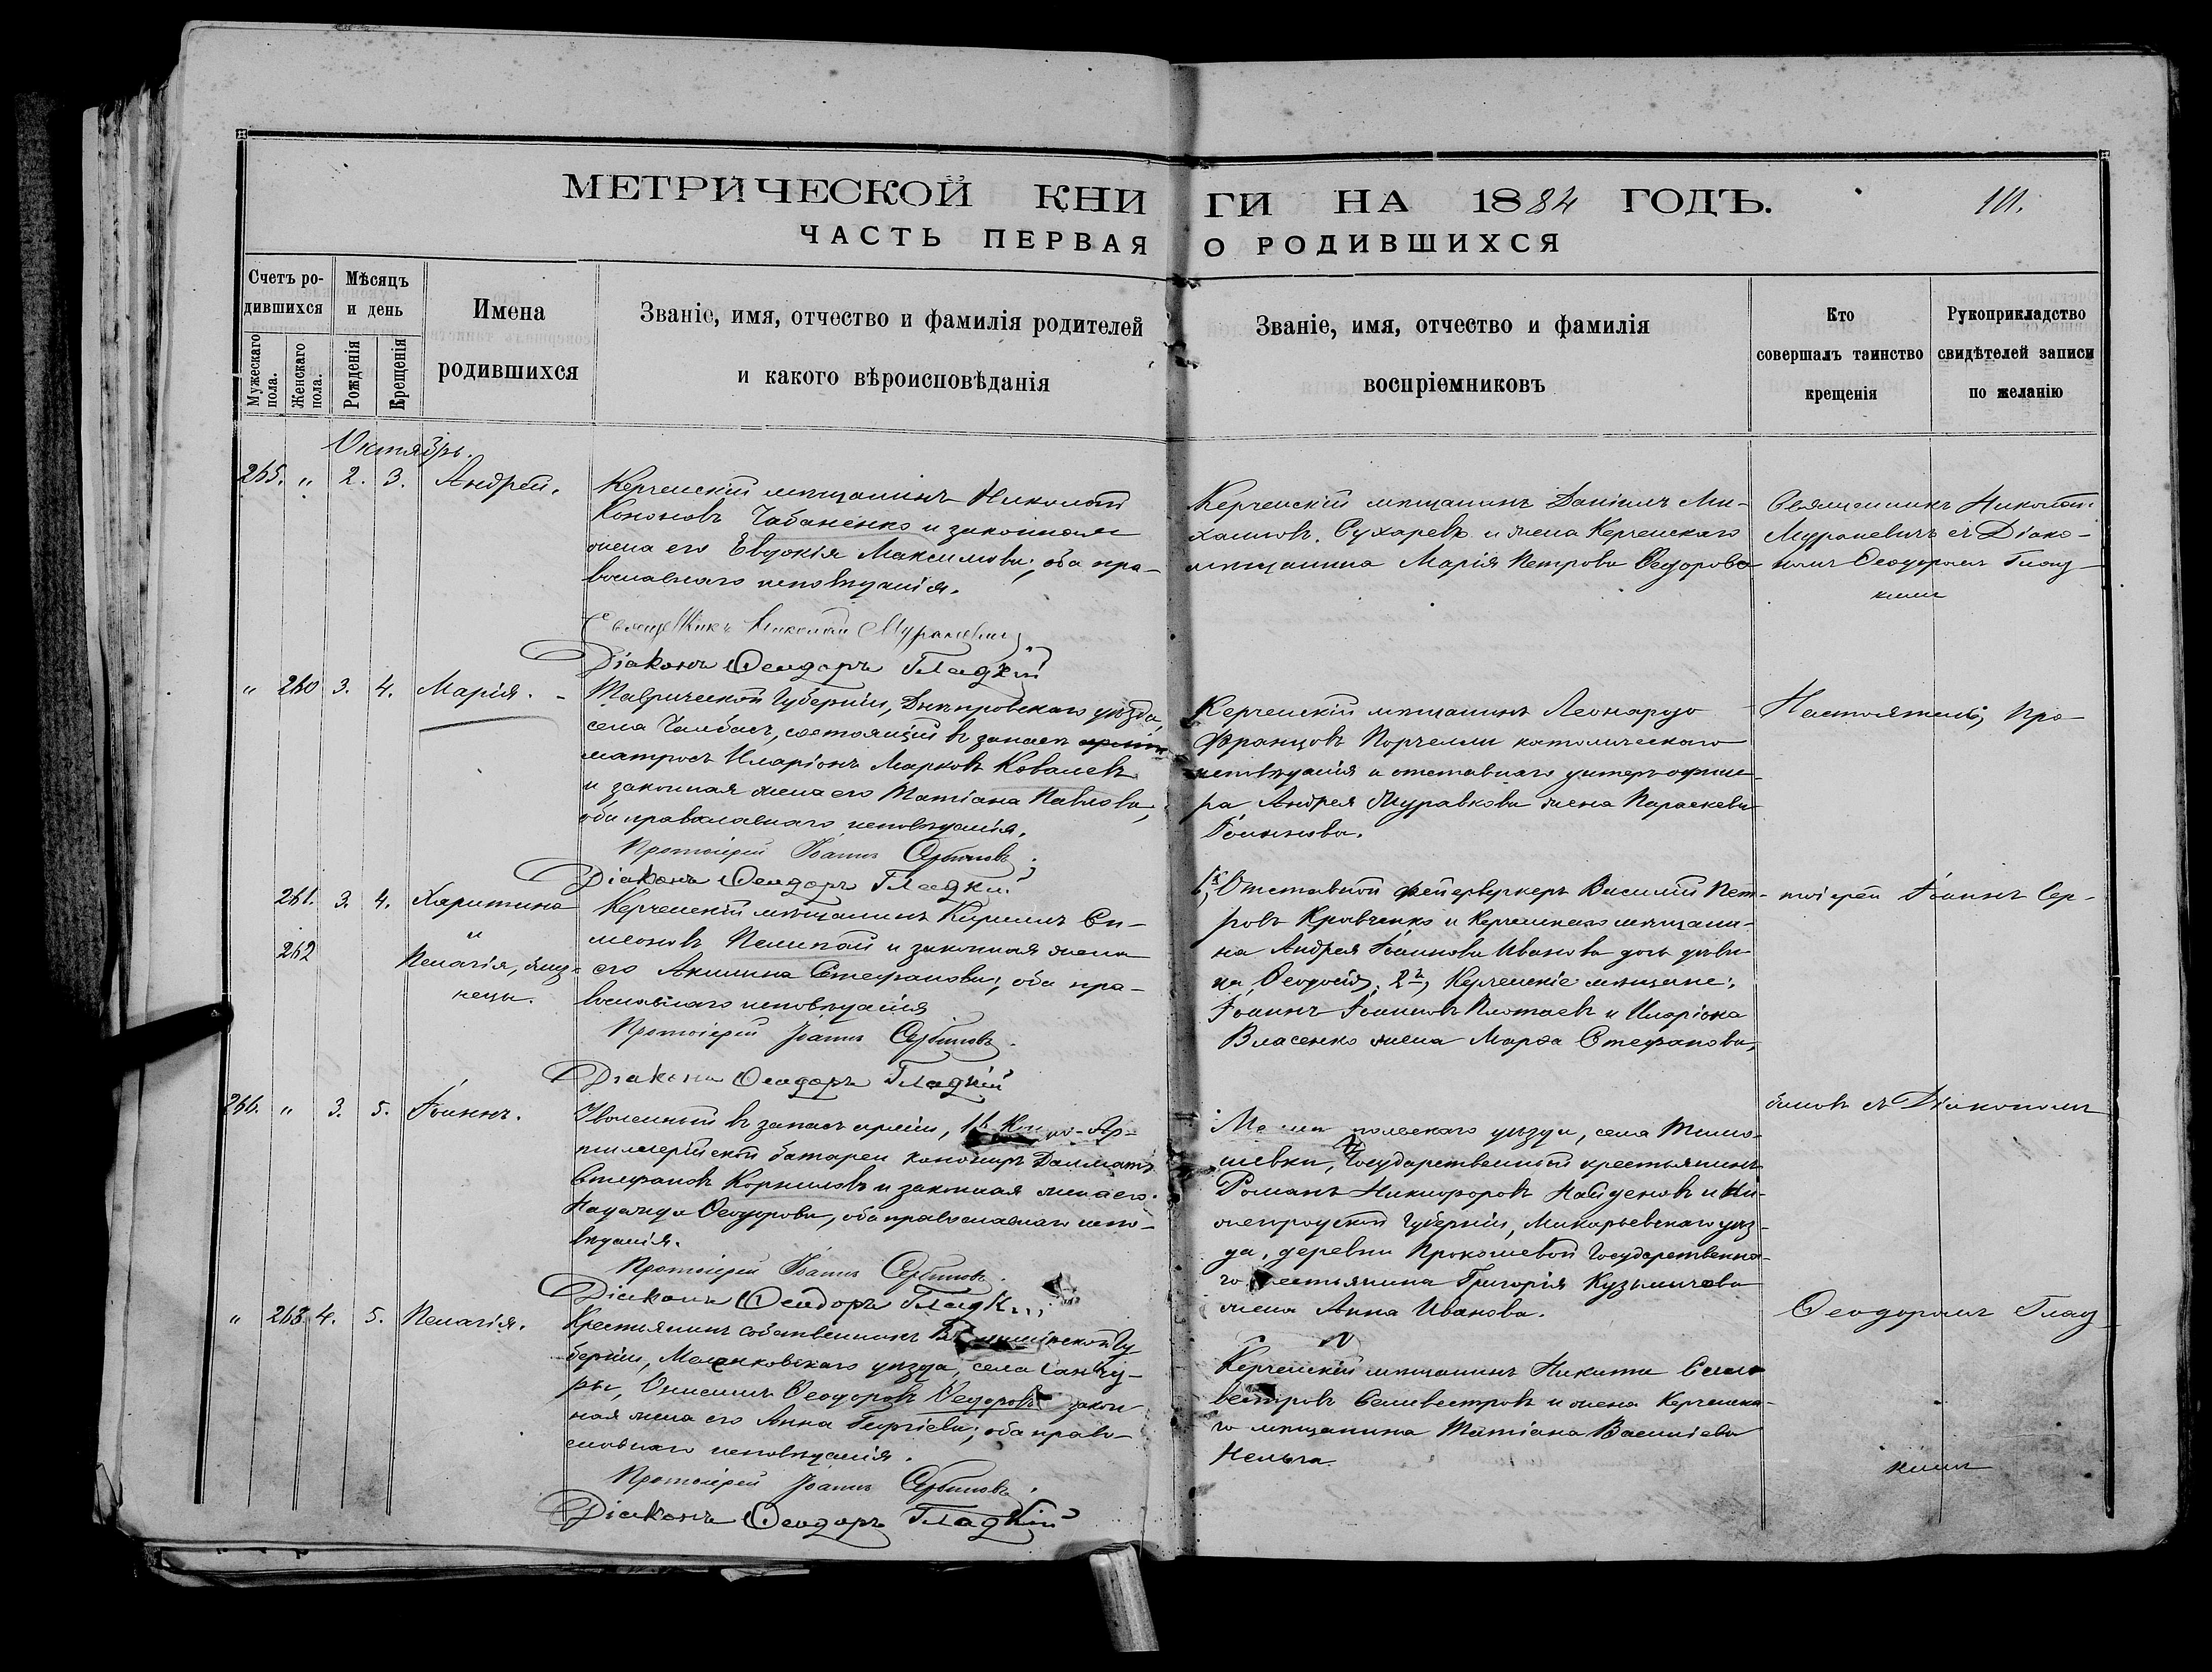 МЕТРИЧЕСКОЙ КНИ ГИ НА 1884 ГОДЪ.
ЧАСТЬ ПЕРВАЯ О РОДИВШИХСЯ
Счетъ ро-
дившихся
Мужескаго пола.
Женскаго пола.
Мѣсяцъ
и день
Рожденія
Крещенія
Имена
родившихся
Званіе, имя, отчество и фамилія родителей
и какого вѣроисповѣданія
Званіе, имя, отчество и фамилія
воспріемниковъ
Кто
совершалъ таинство
крещенія
Рукоприкладство
свидѣтелей записи
по желанію
Октябрь.
265. " 2. 3. Андрей.
Керченскій мѣщанинъ Николай
Кононовъ Чабаненко и законная
жена его Евдокія Максимова; оба пра-
вославнаго исповѣданія.
Священникъ Николай Мураневичъ
Діаконъ Ѳеодоръ Гладкій
Керченскій мѣщанинъ Даніилъ Ми-
хаиловъ Сухаревъ и жена Керченскаго
мѣщанина Марія Петрова Ѳедорова
Священникъ Николай
Мураневичъ съ Діако-
номъ Ѳеодоромъ Глад-
кимъ
" 260 3. 4. Марія.
Таврической Губерніи, Днѣпровскаго уѣзда,
села Чалбасъ, состоящій въ запасѣ
матросъ Иларіонъ Марковъ Ковалевъ
и законная жена его Татіана Павлова,
оба православнаго исповѣданія.
Протоіерей Іоаннъ Сербиновъ
Діаконъ Ѳеодоръ Гладкій
Керченскій мѣщанинъ Леонардо
Францовъ Порчелли католическаго
исповѣданія и отставнаго унтеръ-офице-
ра Андрея Журавкова жена Параскева
Іоаннова.
Настоятель, Про-
261. 3. 4. Харитина
и
262 Пелагія, близ-
нецы.
Керченскій мѣщанинъ Кириллъ Си-
меоновъ Пелипай и законная жена
его Акилина Стефанова; оба пра-
вославнаго исповѣданія
Протоіерей Іоаннъ Сербиновъ.
Діаконъ Ѳеодоръ Гладкій
Отставной фейерверкеръ Василій Пет-
ровъ Кравченко и Керченскаго мѣщани-
на Андрея Іоаннова Иванова дочь дѣви-
ца Ѳеодосія. 2й, Керченскіе мѣщане:
Іоаннъ Іоанновъ Плотаевъ и Иларіона
Власенко жена Марѳа Стефанова,
тоіерей Іоаннъ Сер-
266. " 3. 5. Іоаннъ.
Уволенный въ запасъ арміи, 16 Ар-
тиллерійской батареи канониръ Далматъ
Стефановъ Корниловъ и законная жена его
Надежда Ѳеодорова, оба православнаго испо-
вѣданія.
Протоіерей Іоаннъ Сербиновъ.
Діаконъ Ѳеодоръ Гладкій
уѣзда, села Тимо-
шевки, Государственный крестьянинъ
Романъ Никифоровъ Найденовъ и Ни-
жегородской Губерніи, Макарьевскаго уѣз-
да, деревни Прокошевой Государственна-
го крестьянина Григорія Кузьмичева
жена Анна Иванова.
биновъ съ Діакономъ
" 263. 4. 5. Пелагія.
Крестьянинъ собственникъ Гу-
берніи, Меленковскаго уѣзда, села Санчу-
ры, Онисимъ Ѳеодоровъ Ѳедоровъ закон-
ная жена его Анна Георгіева; оба право-
славнаго исповѣданія.
Протоіерей Іоаннъ Сербиновъ.
Діаконъ Ѳеодоръ Гладкій
Керченскій мѣщанинъ Никита Сель-
вестровъ Селивестровъ и жена Керченска-
го мѣщанина Татіана Василіева
Нельга
Ѳеодоромъ Глад-
кимъ